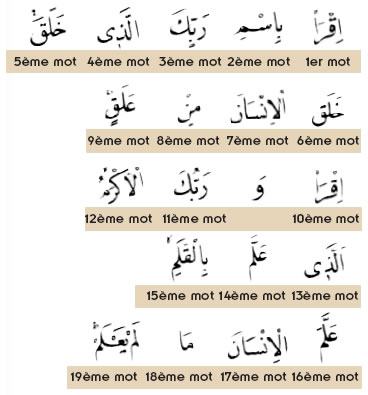 اِقْرَأْ بِاسْمِ رَبِّكَ الَّذٖى خَلَقَۚ
1er mot 2ème mot 3ème mot 4ème mot 5ème mot
خَلَقَ الْاِنْسَانَ مِنْ عَلَقٍۚ
6ème mot 7ème mot 8ème mot 9ème mot
اِقْرَأْ وَ رَبُّكَ الْاَكْرَمُۙ
10ème mot 11ème mot 12ème mot
اَلَّذٖى عَلَّمَ بِالْقَلَمِۙ
13ème mot 14ème mot 15ème mot
عَلَّمَ الْاِنْسَانَ مَا لَمْ يَعْلَمْۜ
16ème mot 17ème mot 18ème mot 19ème mot